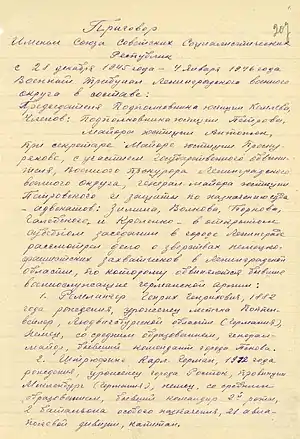 Приговор
207
Именем Союза Советских Социалистических
Республик
с 28 декабря 1945 года – 4 января 1946 года
Военный Трибунал Ленинградского военного
округа в составе:
Председателя Подполковника юстиции
Членов: Подполковника юстиции Петрова,
Майора юстиции Антонюк,
При секретаре Майоре юстиции
с участием государственного обвини-
теля, Военного Прокурора Ленинградского
военного округа, генерал-майора юстиции
Петровского и защиты по назначению суда
– адвокатов: Зимина, Волкова,
и в открытом
судебном заседании в городе Ленинграде
рассмотрел дело о зверствах немецко-
фашистских захватчиков в Ленинградской
области, по которому обвиняются бывшие
военнослужащие германской армии:
1. Ремлингер Генрих Генрихович, 1882
года рождения, уроженец
(Германия),
немец, со средним образованием, генерал-
майор, бывший комендант города Пскова.
2. Штрюфинг Карл Герман, 1912 года
рождения, уроженец город Росток, провинции
Мекленбург (Германия), немец, со средним
образованием, бывший командир 2й роты,
2 батальона особого назначения, 21 авиа-
полевой дивизии, капитан.